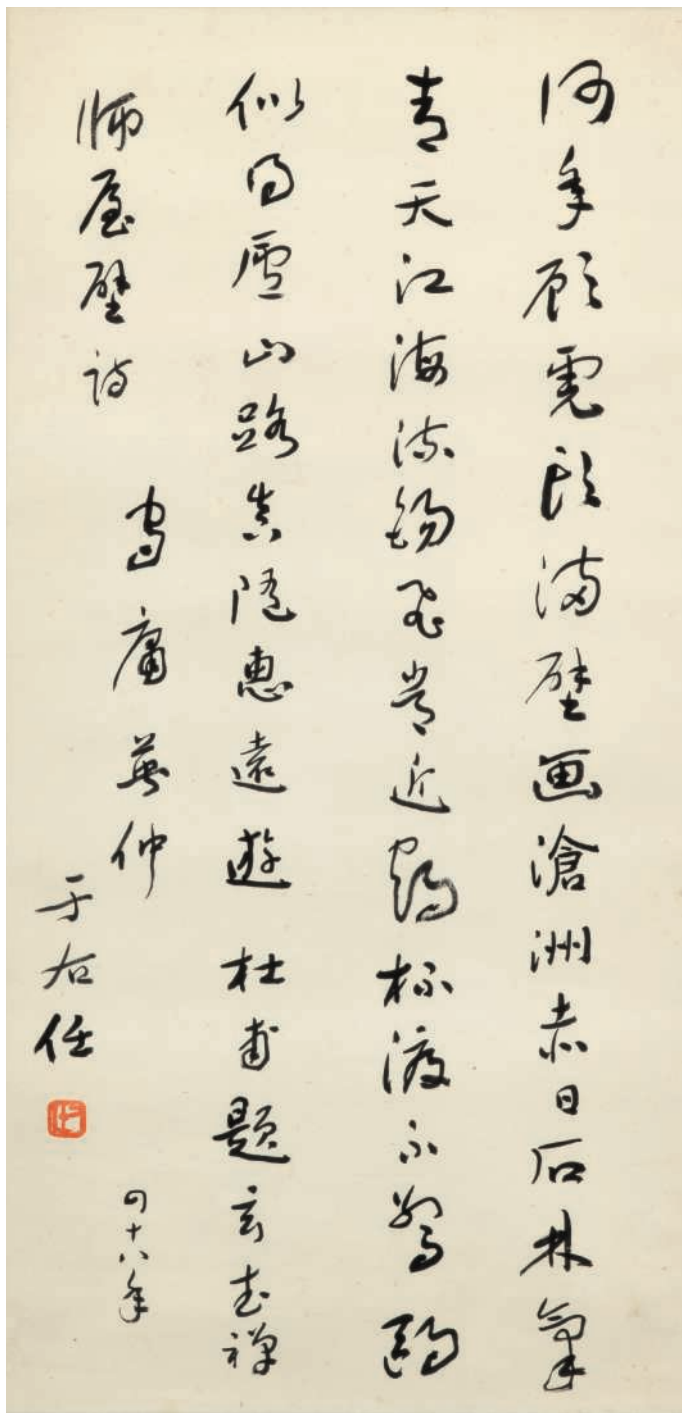 何年顧虎頭滿壁画滄洲赤日石林氣
青天江海流錫飛常近鶴杯渡不驚鷗
似得廬山路真隨惠遠遊杜甫題玄武禪
師屋壁詩
庸 仲
四十八年
于右任